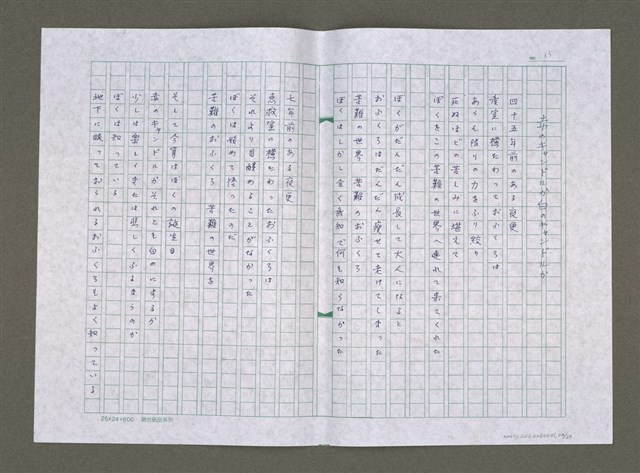 15
赤のキャンドルか白のキャンドルか
四十五年前のある夜更
産室に横たわっておふくろは
あらん限りの力をふり絞り
死ぬほどの苦しみに堪えて
ぼくをこの苦難の世界へ連れて来てくれた
ぼくがだんだん成長して大人になると
おふくろはだんだん痩せて老けてしまった
苦難の世界 苦難のおふくろ
ぼくはしかし全く無知で何も知らなかった
七年前のある夜更
急救室に横たわったおふくろは
それより目醒めることがなかった
ぼくは初めて悟ったのだ
苦難のおふくろ 苦難の世界を
そして今宵はぼくの誕生日
赤のキャンドルかそれとも白のにするか
少しは楽しくまたは悲しくふるまうのか
ぼくは知っている
地下に眠っておられるおふくろもよく知っている
25×24=600